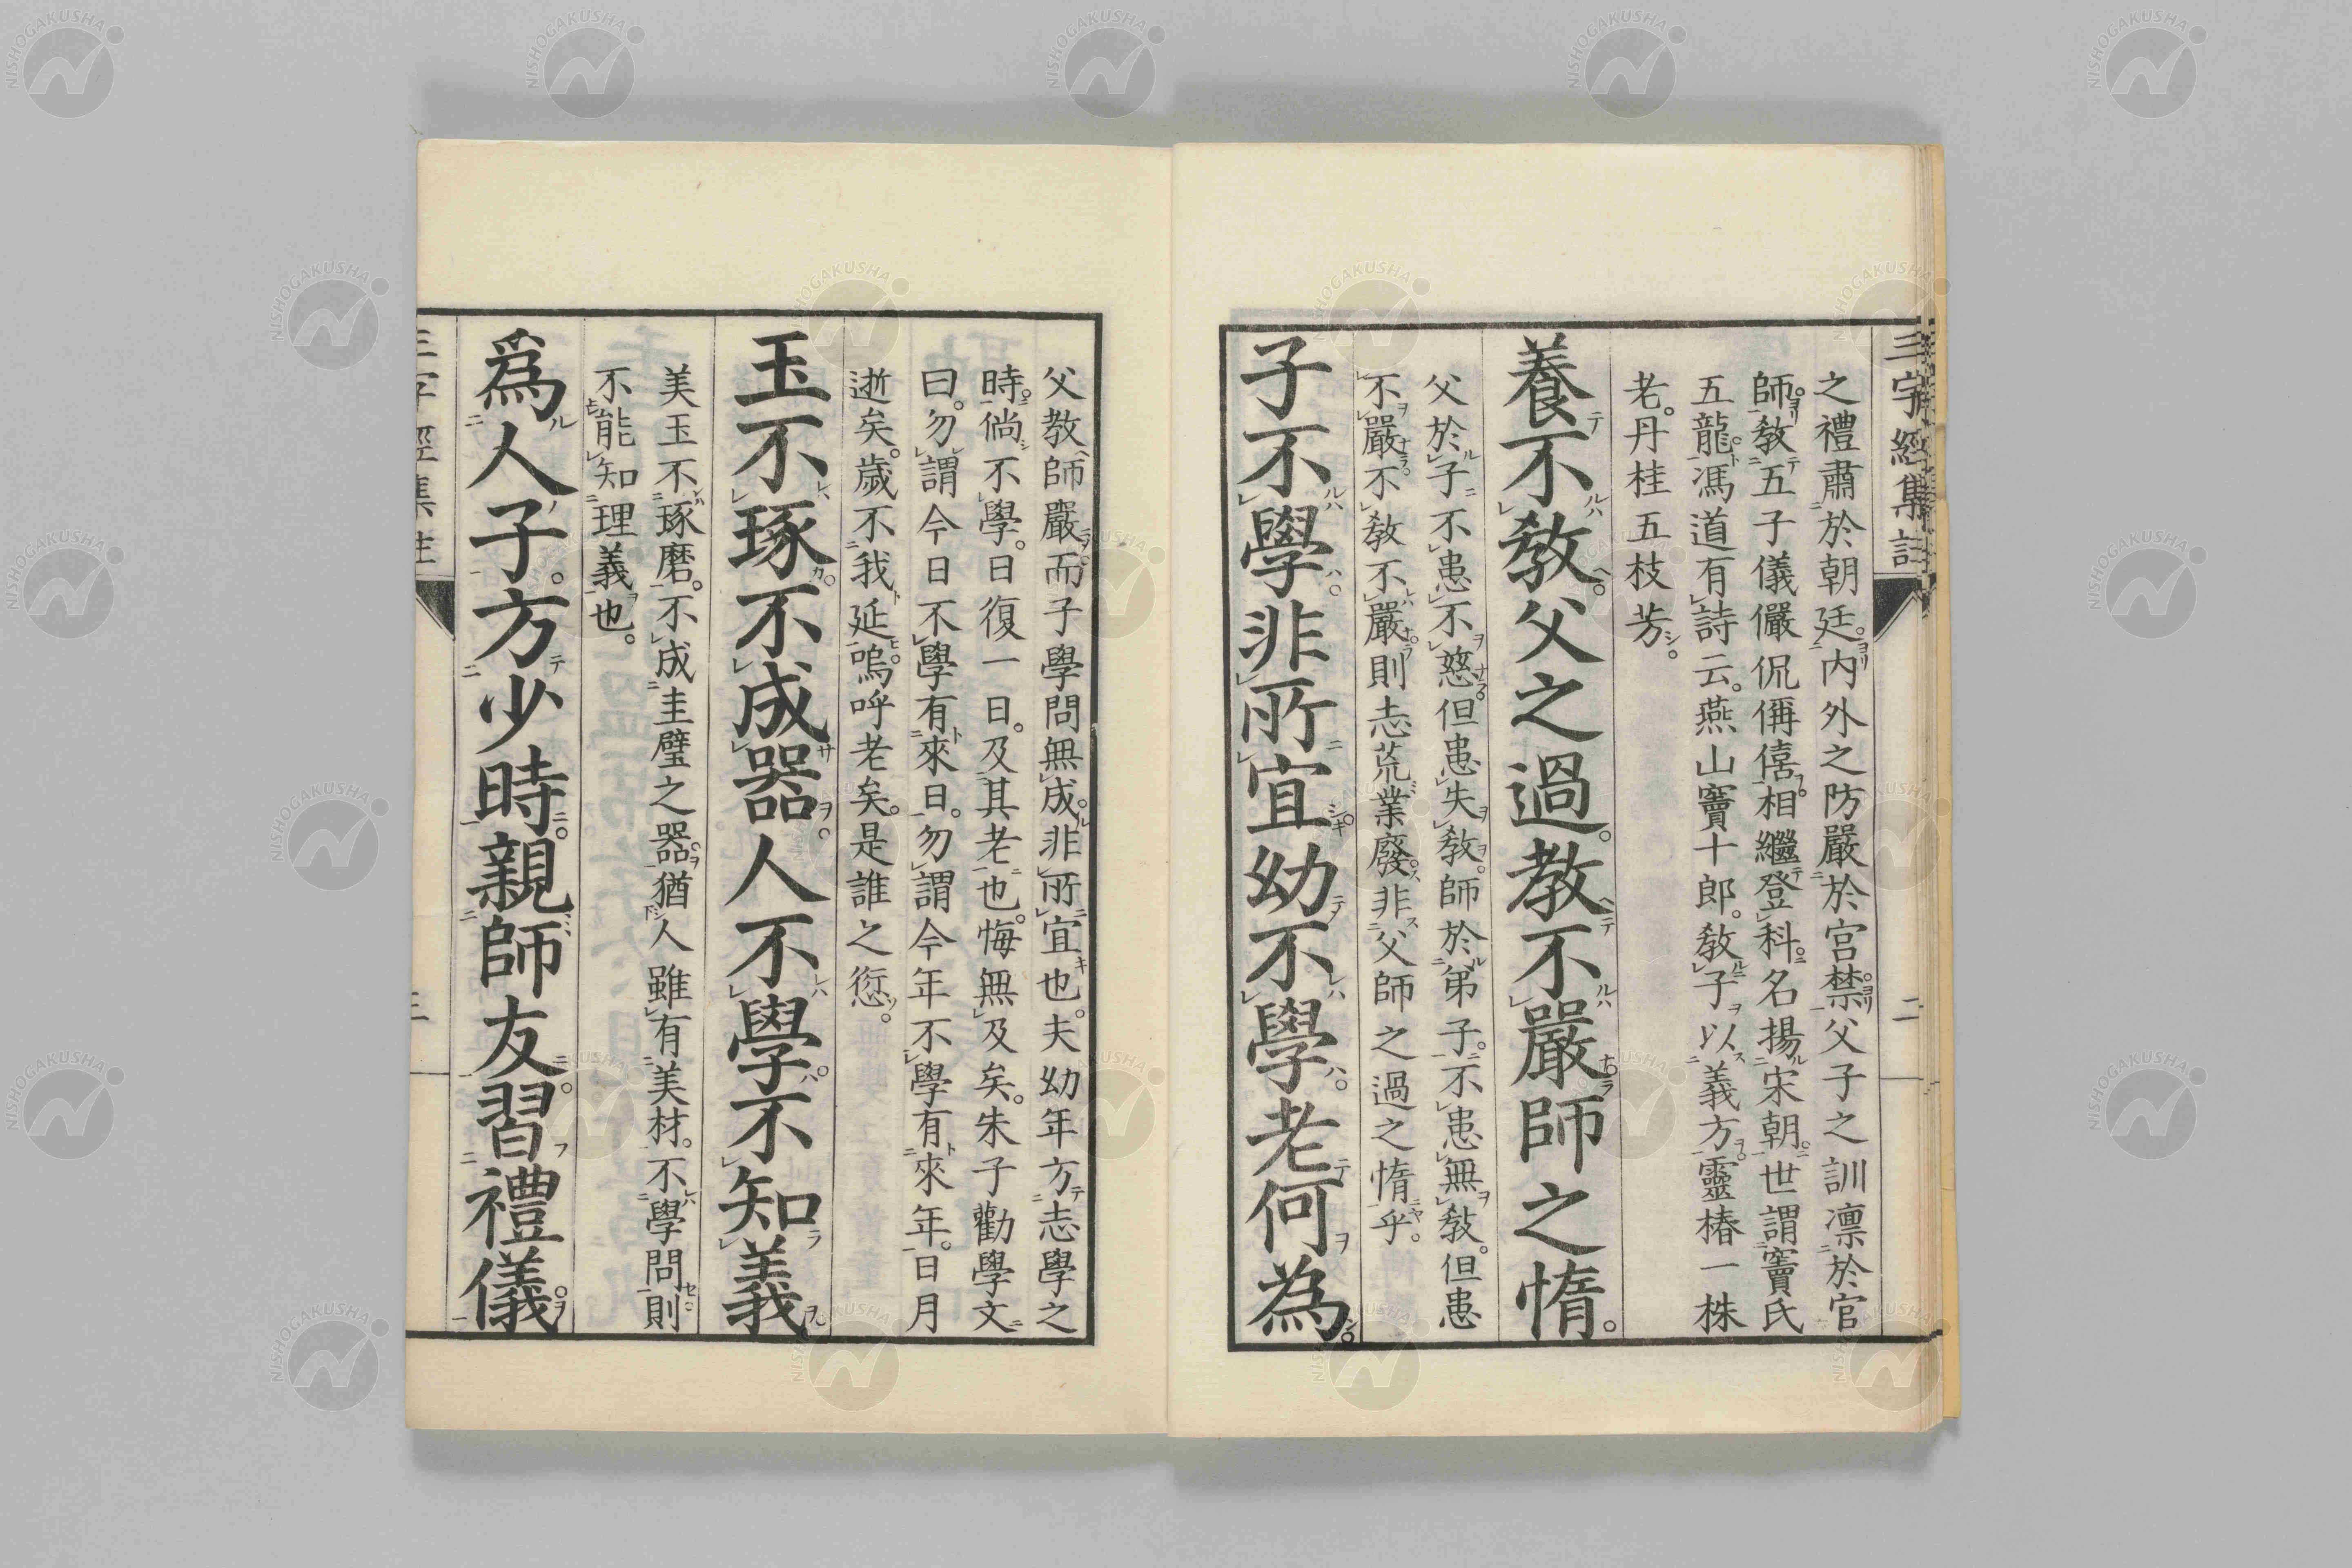 三字經集註
二
之禮肅於朝廷。内外之防嚴於宮禁。父子之訓凛於官
師。教五子儀儼侃偁僖。相繼登科。名揚宋朝。世謂竇氏
五龍。馮道有詩云。燕山竇十郎。教子以義方。靈椿一株
老。丹桂五枝芳。
養不教。父之過。教不嚴。師之惰。
父於子不患不慈。但患失教。師於弟子。不患無教。但患
不嚴。不教不嚴。則志荒業廢。非父師之過之惰乎。
子不學。非所宜。幼不學。老何為。
父教師嚴。而子學問無成。非所宜也。夫幼年方志學之
時。倘不學。日復一日。及其老也。悔無及矣。朱子勸學文
曰。勿謂今日不學有來日。勿謂今年不學有來年。日月
逝矣。歲不我延。嗚呼老矣。是誰之愆。
玉不琢。不成器。人不學。不知義。
美玉不琢磨。不成圭璧之器。猶人雖有美材。不學問則
不能知理義也。
爲人子。方少時。親師友。習禮儀。
三字經集註
三
NISHOGAKUSHA